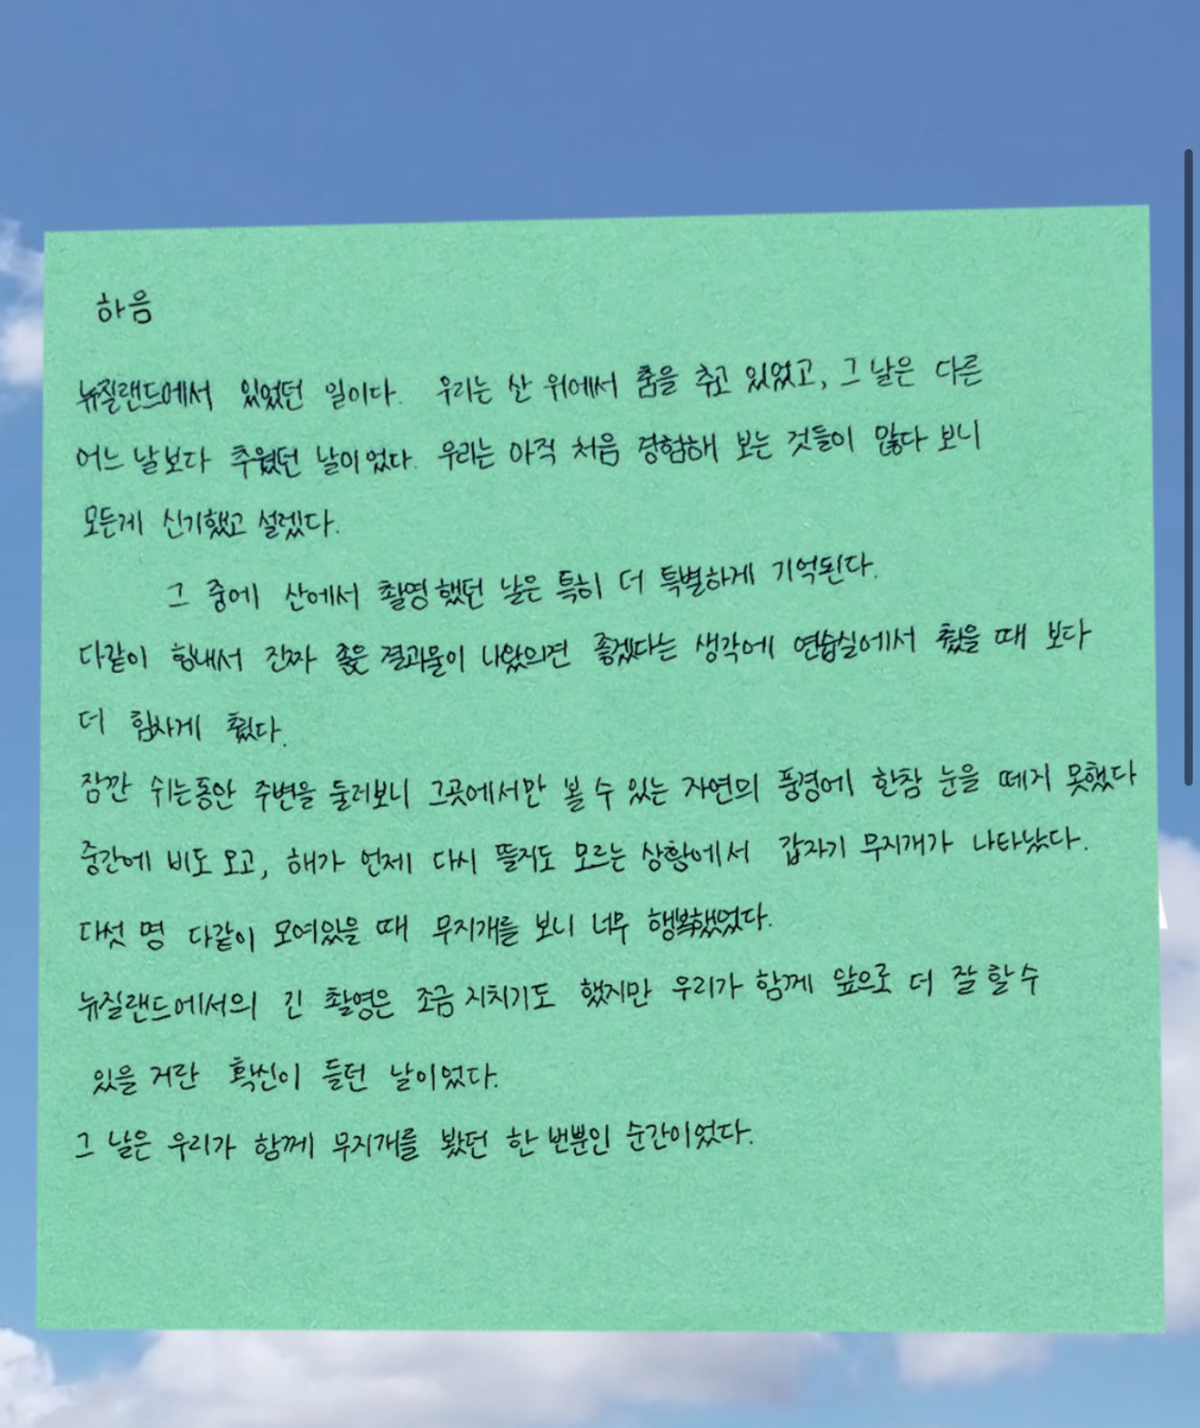 하음
뉴질랜드에서 있었던 일이다. 우리는 산 위에서 춤을 추고 있었고, 그 날은 다른
어느 날보다 추웠던 날이었다. 우리는 아직 처음 경험해 보는 것들이 많다 보니
모든게 신기했고 설렜다.
그 중에 산에서 촬영했던 날은 특히 더 특별하게 기억된다.
다같이 힘내서 진짜 좋은 결과물이 나왔으면 좋겠다는 생각에 연습실에서 췄을 때 보다
더 힘차게 췄다.
잠깐 쉬는동안 주변을 둘러보니 그곳에서만 볼 수 있는 자연의 풍경에 한참 눈을 떼지 못했다
중간에 비도 오고, 해가 언제 다시 뜰지도 모르는 상황에서 갑자기 무지개가 나타났다.
다섯 명 다같이 모여있을 때 무지개를 보니 너무 행복했었다.
뉴질랜드에서의 긴 촬영은 조금 지치기도 했지만 우리가 함께 앞으로 더 잘 할 수
있을 거란 확신이 들던 날이었다.
그 날은 우리가 함께 무지개를 봤던 한 번뿐인 순간이었다.